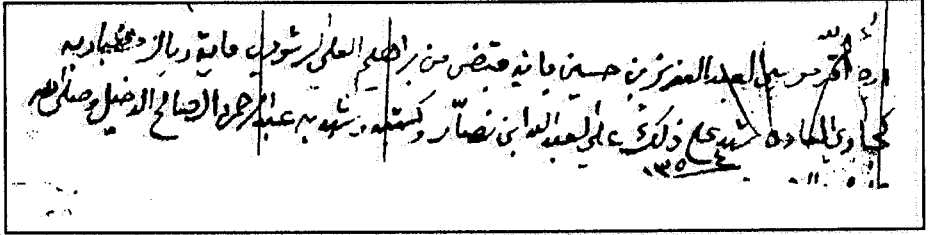 الله
أقر موسى العبد العزيز بن حسين بانه قبض من براهيم العلي الرشودي ماية ريال
شهد على ذلك علي العبد الله ابن نصار وكتبه وشهد به عبد الرحمن الصالح الدخيل وصلى الله
١٣٥٤